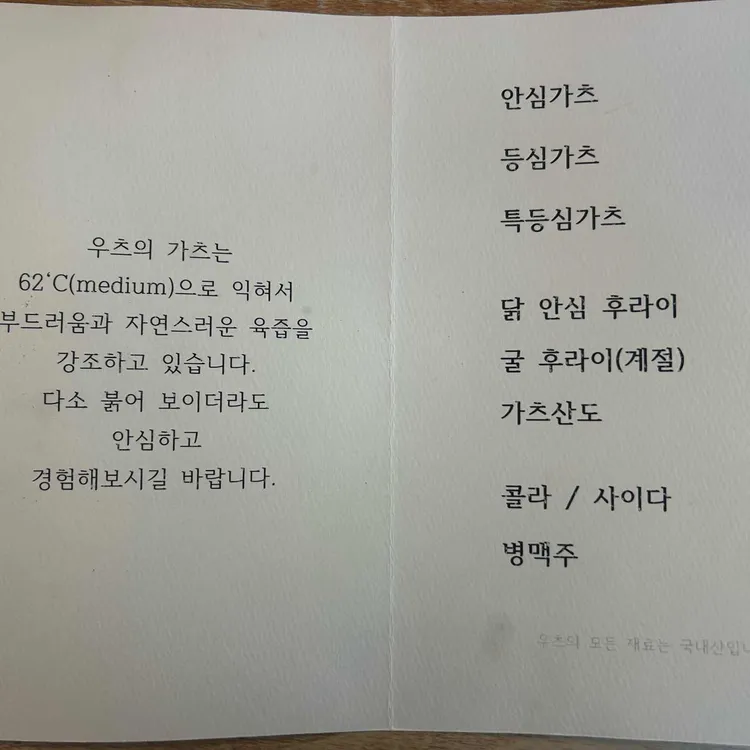 우츠의 가츠는
62‘C(medium)으로 익혀서
부드러움과 자연스러운 육즙을
강조하고 있습니다.
다소 붉어 보이더라도
안심하고
경험해보시길 바랍니다.
안심가츠
등심가츠
특등심가츠
닭 안심 후라이
굴 후라이(계절)
가츠산도
콜라 / 사이다
병맥주
우츠의 모든 재료는 국내산입니